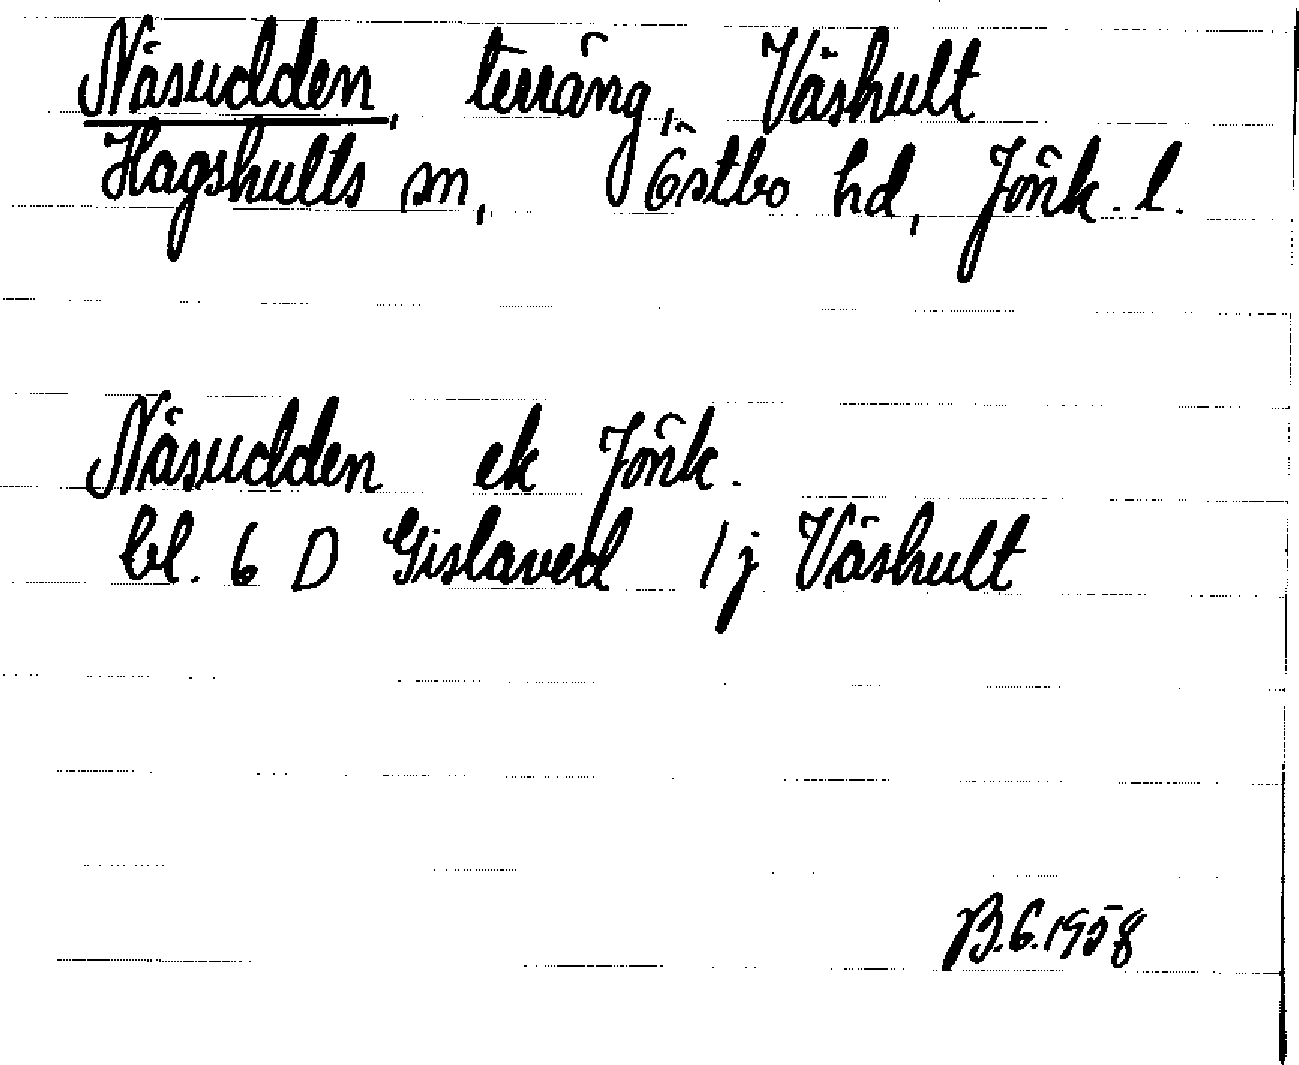 Näsudden, terräng, Väshult
Hagshults sn, Östbo hd, Jönk. l.
Näsudden ek Jönk.
bl. 6 D Gislaved 1 j Väshult
B.G. 1958